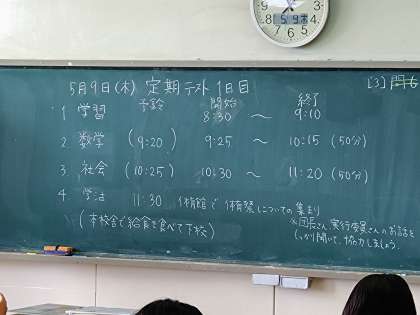 5月9日(木) 定期テスト1日目
予鈴 開始 終了
1 学習 8:30 ～ 9:10
2 数学 (9:20) 9:25 ～ 10:15 (50分)
3 社会 (10:25) 10:30 ～ 11:20 (50分)
4 学活 11:30 体育館で体育祭についての集まり
(本校舎で給食を食べて下校)
※団長さん、実行委員さんのお話を
しっかり聞いて、協力しましょう。